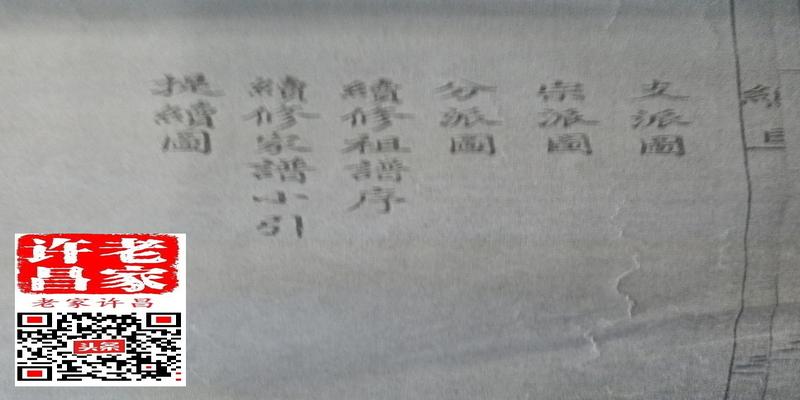 支派圖
宗派圖
分派圖
續修祖譜序
續修家譜小引
提續圖
老家
许昌
老家许昌
头条